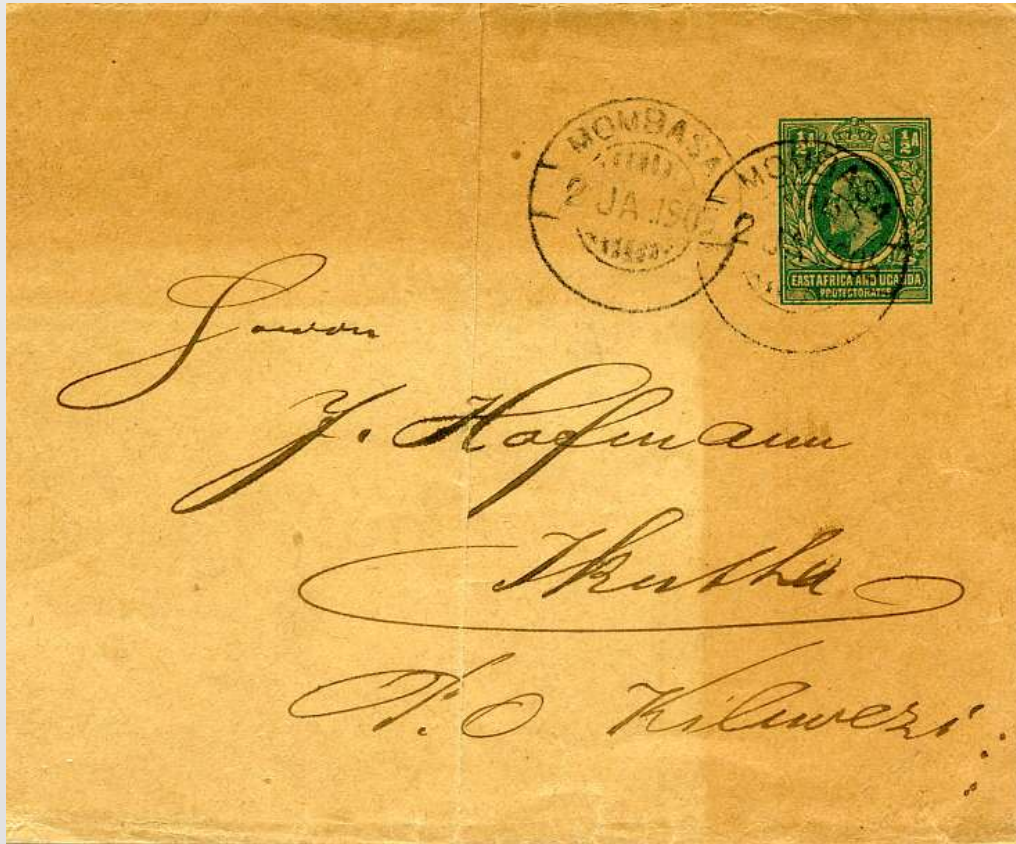 MOMBASA
2 JA 190
MOMBASA
2
½A ½A
EAST AFRICA AND UGANDA
PROTECTORATES
J. Hofmann
Ikutha
P.O Kibwezi